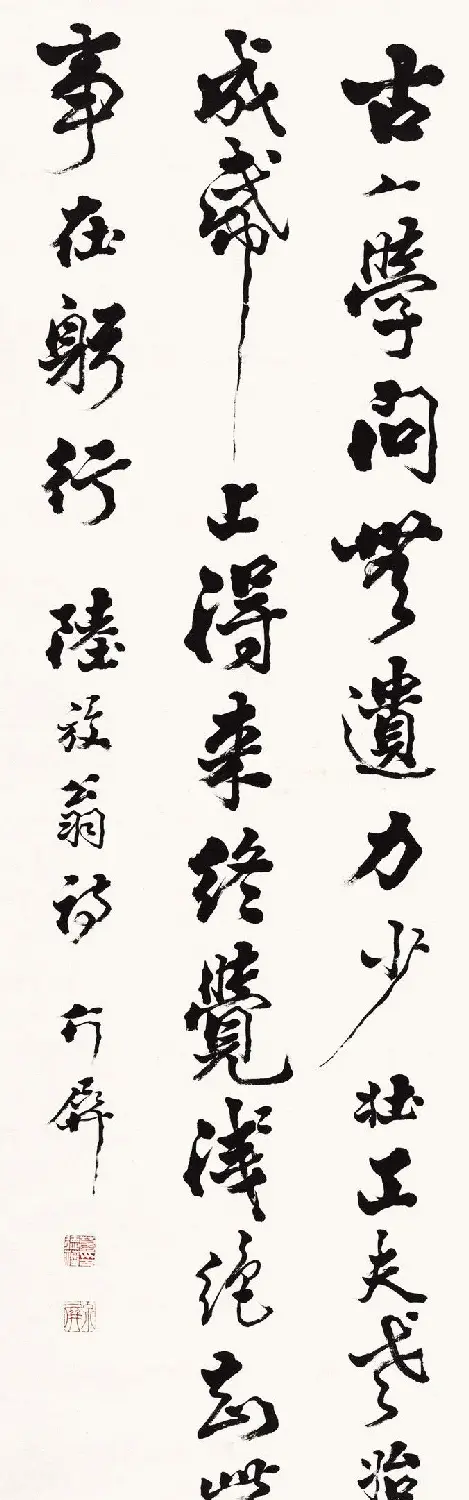 古人學問無遺力少壯工夫老始
成帋上得来終覺淺絕知此
事在躬行 陸放翁詩